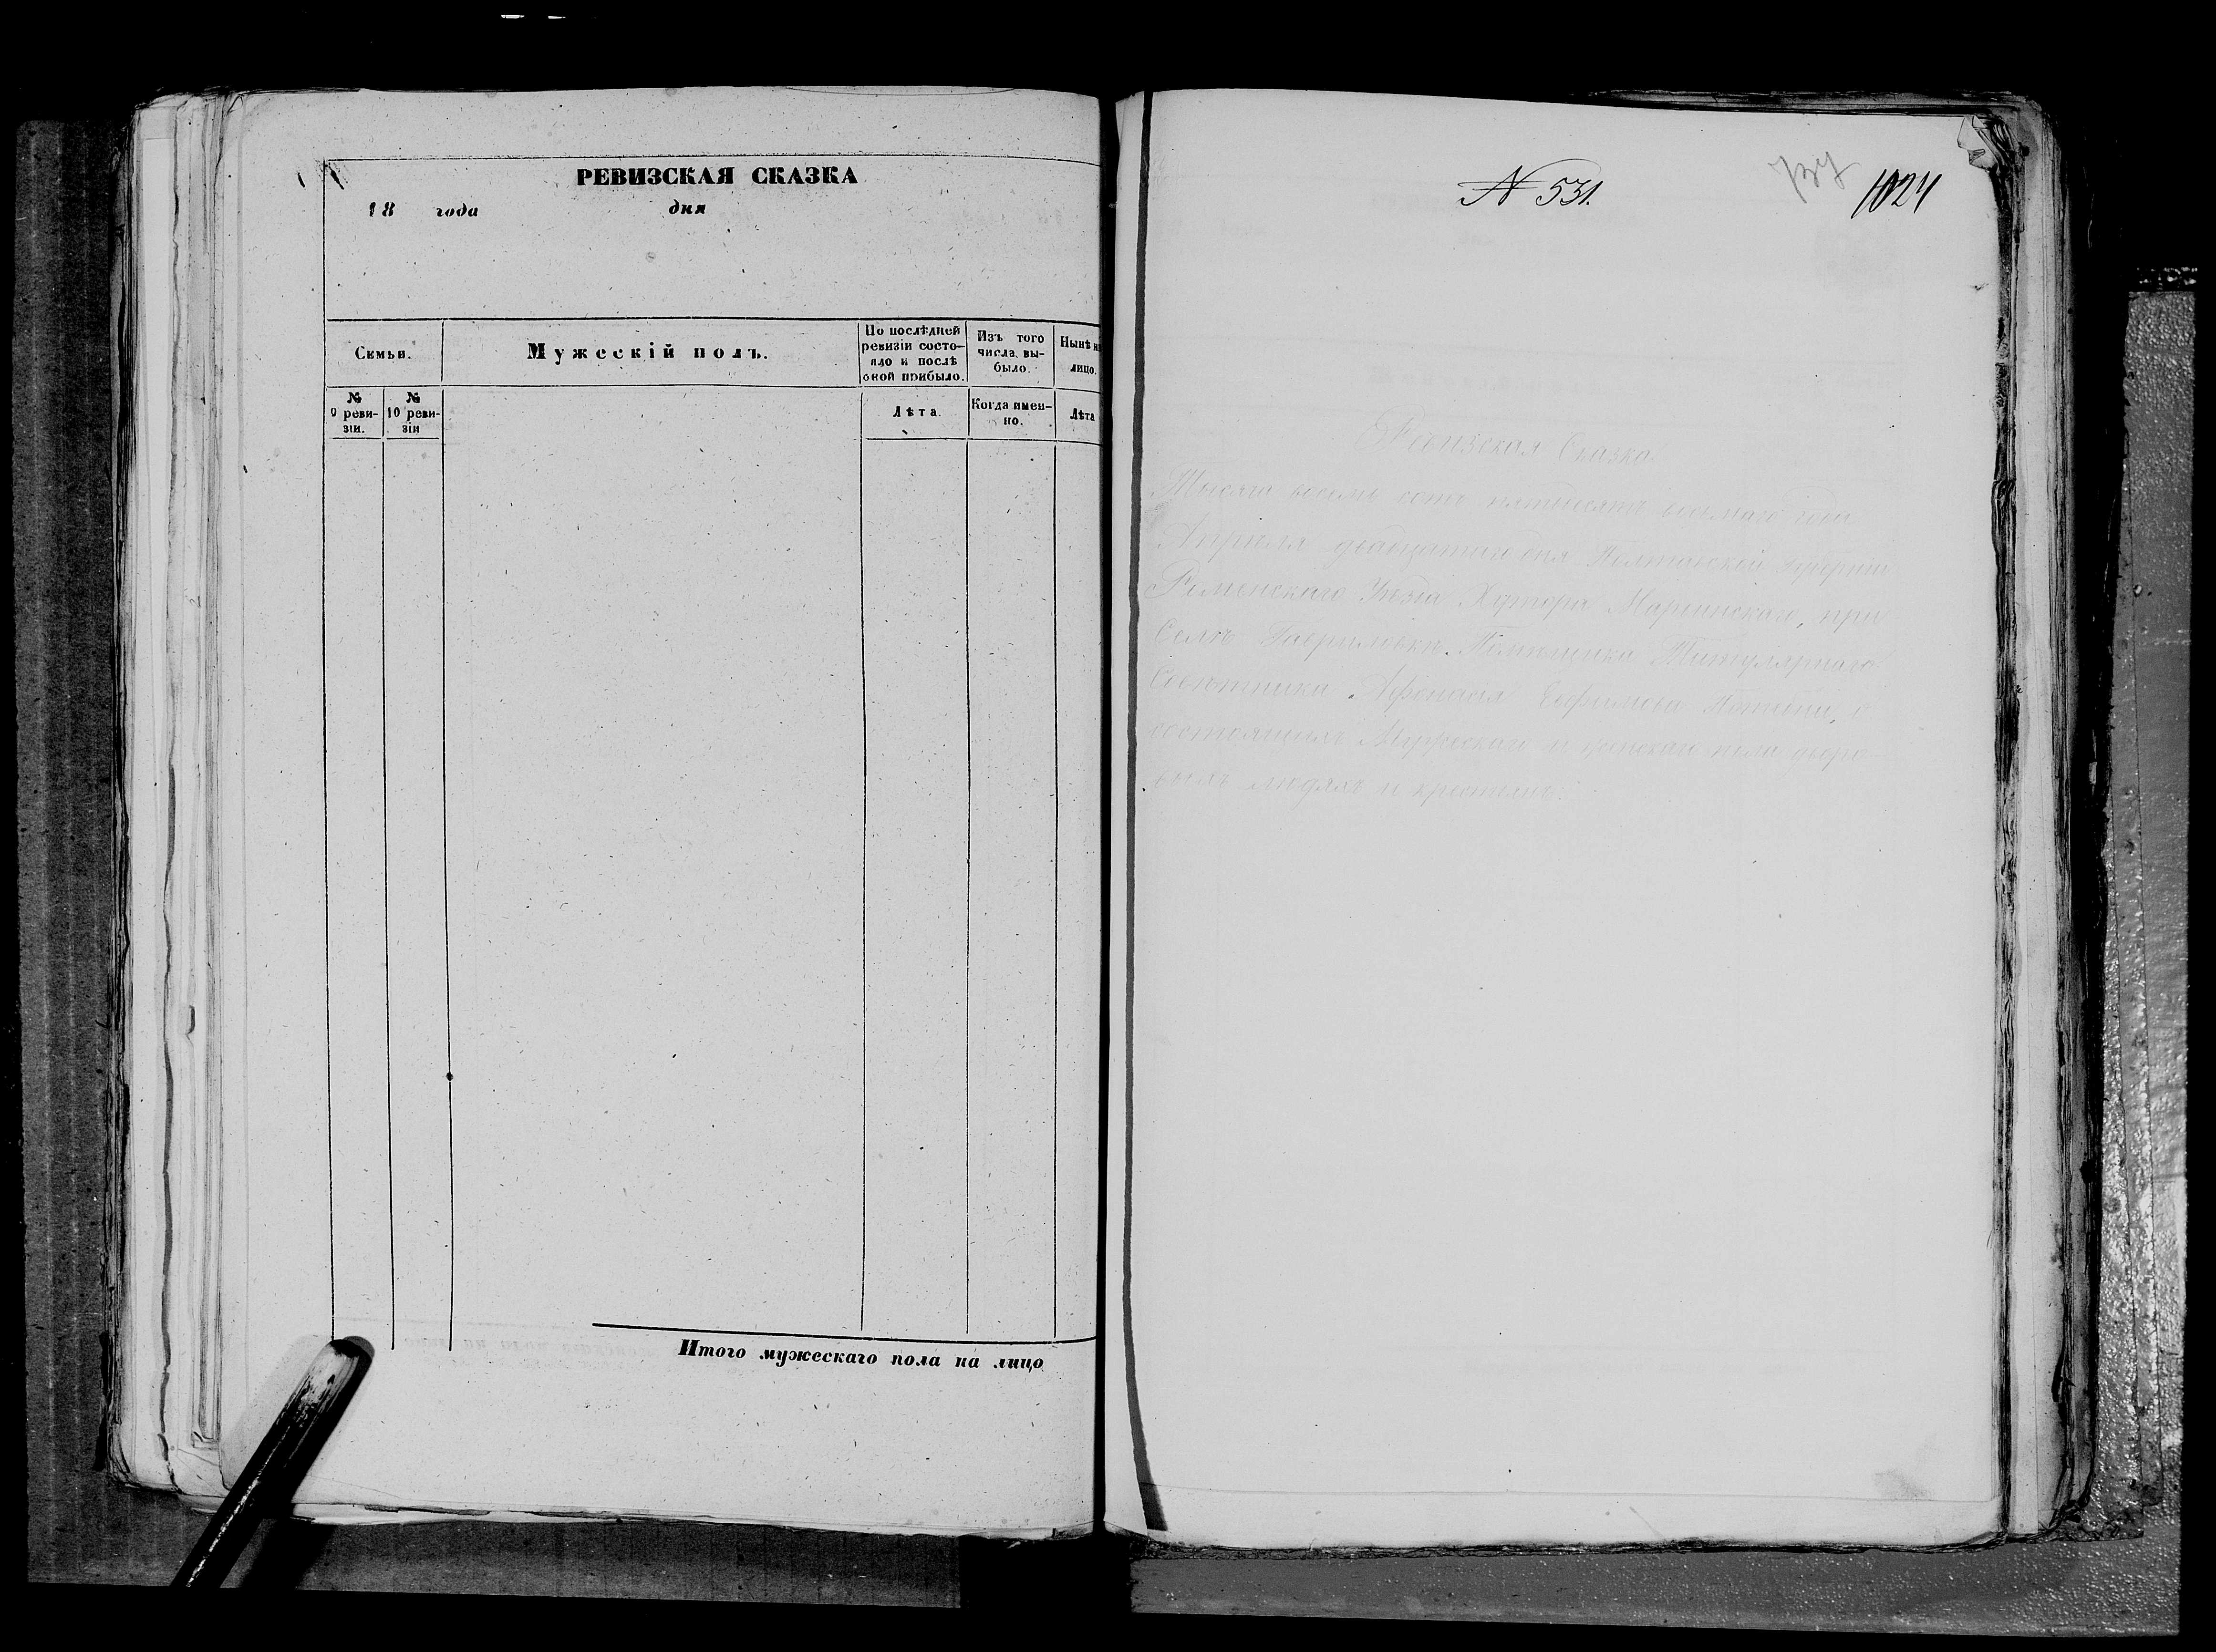 РЕВИЗСКАЯ СКАЗКА
18 года дня
Семьи.
Мужескій полъ.
По послѣдней
ревизіи состо-
яло и послѣ
оной прибыло.
Изъ того
числа вы-
было.
Нынѣ на
лицо.
№
9 реви-
зіи.
№
10 реви-
зіи
Лѣта.
Когда имен-
но.
Лѣта
Итого мужескаго пола на лицо
N 531.
1024
Ревизская Сказка
Тысяча восемь сотъ пятьдесятъ восьмаго года
Апрѣля двадцатаго дня Полтавской Губерніи
Роменскаго Уѣзда Хутора Маріинскаго, при
Селѣ Гавриловки. Помѣщика Титулярнаго
Совѣтника Афонасія Ефимова о
состоящихъ Мужескаго и женскаго пола дворо-
выхъ людяхъ и крестьянъ.